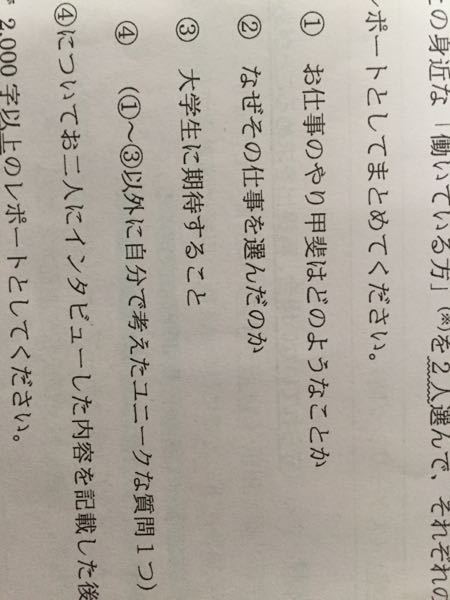 の身近な「働いている方」(※)を２人選んで、それぞれの
レポートとしてまとめてください。
① お仕事のやり甲斐はどのようなことか
② なぜその仕事を選んだのか
③ 大学生に期待すること
④ (①～③以外に自分で考えたユニークな質問１つ)
④についてお二人にインタビューした内容を記載した後
2,000 字以上のレポートとしてください。